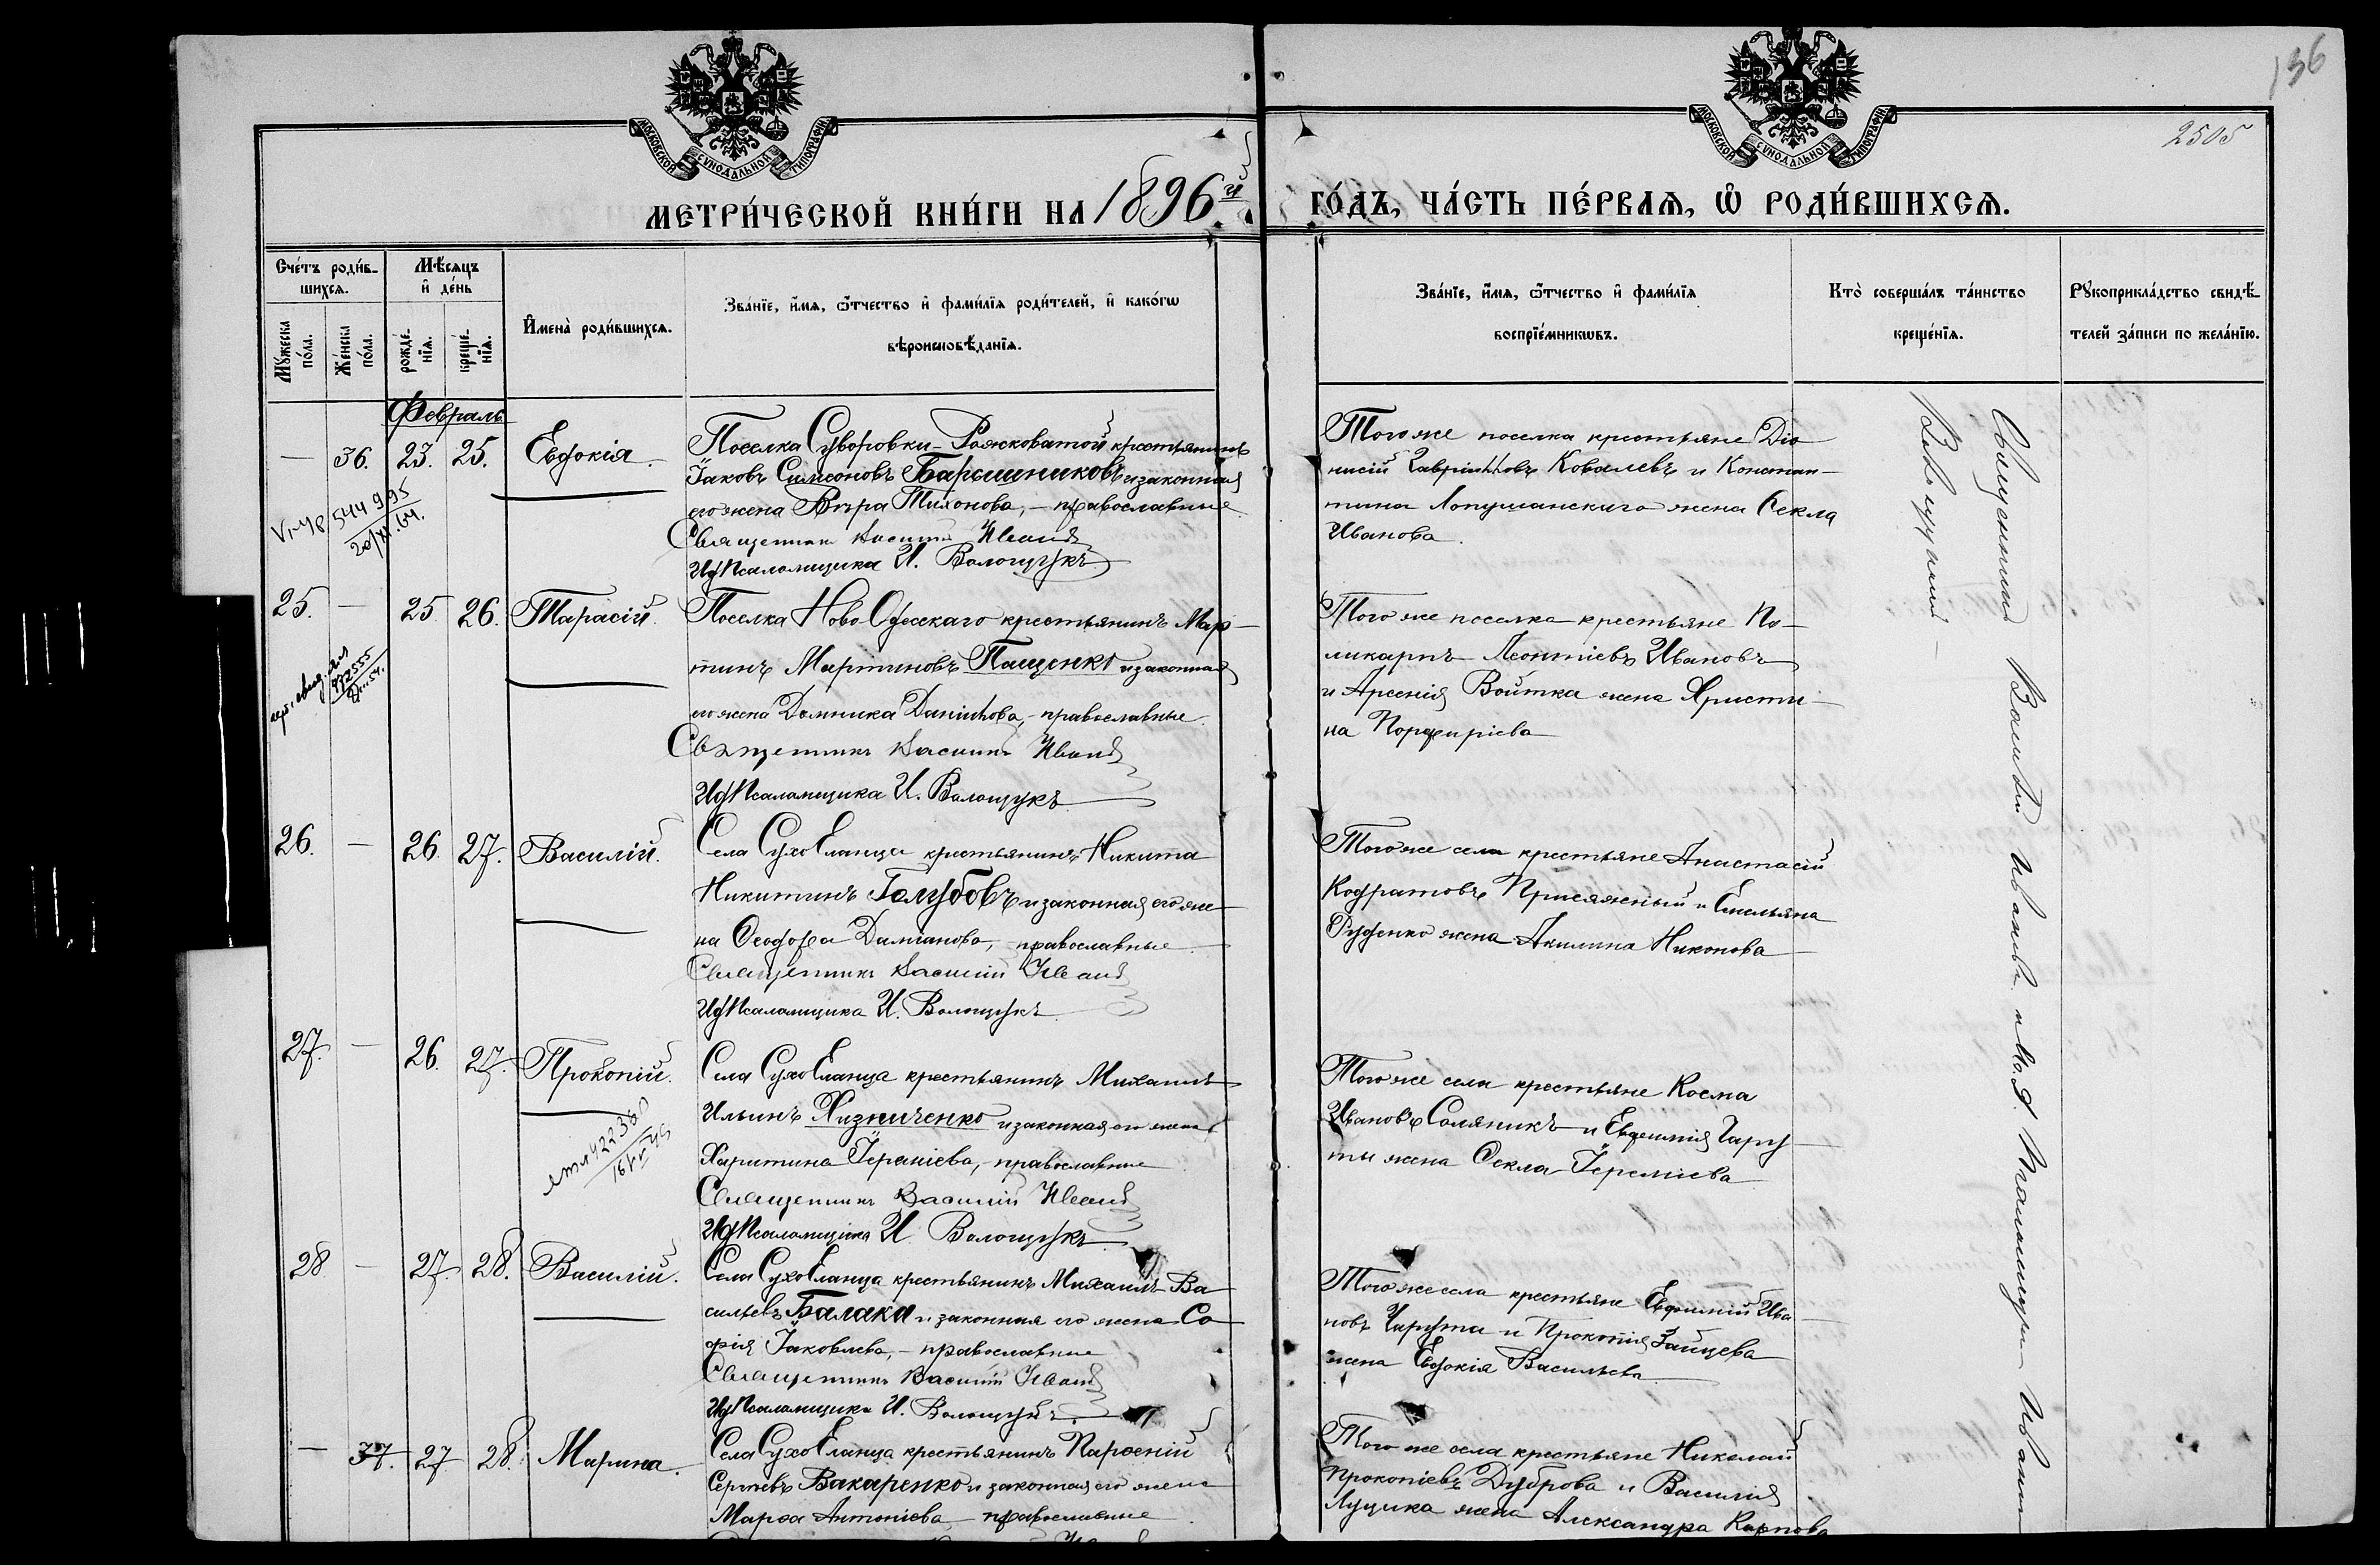 136
2505
МОСКОВСКОЙ СѴНОДАЛЬНОЙ ТИПОГРАФІИ
МОСКОВСКОЙ СѴНОДАЛЬНОЙ ТИПОГРАФІИ
МЕТРИ́ЧЕСКОЙ КНИ́ГИ НА 1896й ГО́ДЪ, ЧА́СТЬ ПЕ́РВАѦ, Ѡ҆ РОДИ́ВШИХСѦ.
Сче́тъ роди́в-
шихсѧ.
Мꙋ́жеска по́ла.
Же́нска по́ла.
Мѣ́сѧцъ
и҆ де́нь
рожде́-
нїѧ.
креще́-
нїѧ.
И҆мена̀ роди́вшихсѧ.
Зва́нїе, и҆́мѧ, ѻ҆́тчество и҆ фами́лїѧ роди́телей, и҆ како́гѡ
вѣроисповѣ́данїѧ.
Зва́нїе, и҆́мѧ, ѻ҆́тчество и҆ фами́лїѧ
воспрїе́мникѡвъ.
Кто̀ соверша́лъ та́инство
креще́нїѧ.
Рꙋкоприкла́дство свидѣ́-
телей за́писи по жела́нїю.
Февраль
— 36. 23. 25. Евдокія.
Поселка Суворовки-Рожковатой крестьянинъ
Іаковъ Симеоновъ Барышниковъ и законная
его жена Вѣра Тихонова, – православные
Священникъ Василій Ивановъ
Ид Псаломщика И. Волощукъ
Того же поселка крестьяне Діо-
нисій Гавріиловъ Ковалевъ и Констан-
тина Лопушанскаго жена Ѳекла
Иванова.
544995
20/XI.64.
25. — 25 26. Тарасій.
Поселка Ново-Одесскаго крестьянинъ Мар-
тинъ Мартиновъ Пащенко и законная
его жена Домника Даніилова, – православные
Священникъ Василій Ивановъ
Ид Псаломщика И. Волощукъ
Того же поселка крестьяне По-
ликарпъ Леонтіевъ Ивановъ
и Арсенія Войтка жена Христи-
на Порфиріева
26. — 26. 27. Василій.
Села СухоЕланца крестьянинъ Никита
Никитинъ Голубовъ и законная его же-
на Ѳеодора Даміанова, православные
Священникъ Василій Ивановъ
Ид Псаломщика И. Волощукъ
Того же села крестьяне Анастасій
Кодратовъ Присяжный и Емельяна
Руденко жена Акилина Никонова
27. — 26. 27. Прокопій.
Села СухоЕланца крестьянинъ Михаилъ
Ильинъ Хизниченко и законная его жена
Харитина Іереміева, – православные
Священникъ Василій Ивановъ
Ид Псаломщика И. Волощукъ
Того же села крестьяне Косма
Ивановъ Соляникъ и Евфимія Чару-
ты жена Ѳекла Іереміева
28 — 27. 28. Василій.
Села СухоЕланца крестьянинъ Михаилъ Ва-
сильевъ Балака и законная его жена Со-
фія Іаковлева, – православные
Священникъ Василій Ивановъ
Ид Псаломщика И. Волощукъ
Того же села крестьяне Евфимій Ива-
новъ Чарута и Прокопія Зайцева
жена Евдокія Васильева
— 37. 27 28. Марина.
Села СухоЕланца крестьянинъ Парѳеній
Сергіевъ Вакаренко и законная его жена
Марѳа Антоніева православные
Того же села крестьяне Николай
Прокопіевъ Дуброва и Василія
Луцика жена Александра Карпова
Священникъ Василій Ивановъ и И. д. Псаломщика Иванъ
Волощукъ